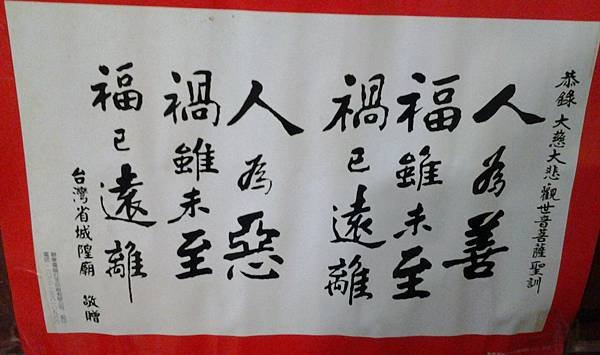 恭錄 大慈大悲觀世音菩薩聖訓
人為善
福雖未至
禍已遠離
人為惡
禍雖未至
福已遠離
台灣省城隍廟 敬贈